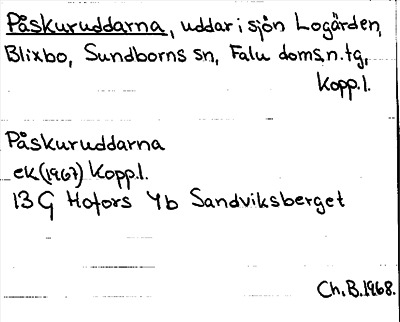 Påskuruddarna, uddar i sjön Logärden,
Blixbo, Sundborns sn, Falu doms.n.tg,
Kopp.l.
Påskuruddarna
ek(1967) Kopp.l.
13 G Hofors 4b Sandviksberget
Ch.B.1968.